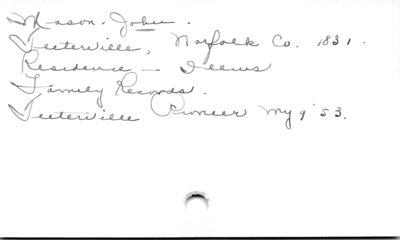 Mason - John.
Teeterville, Norfolk Co. 1831.
Residence -
Family Records.
Teeterville Pioneer My 9 '53.